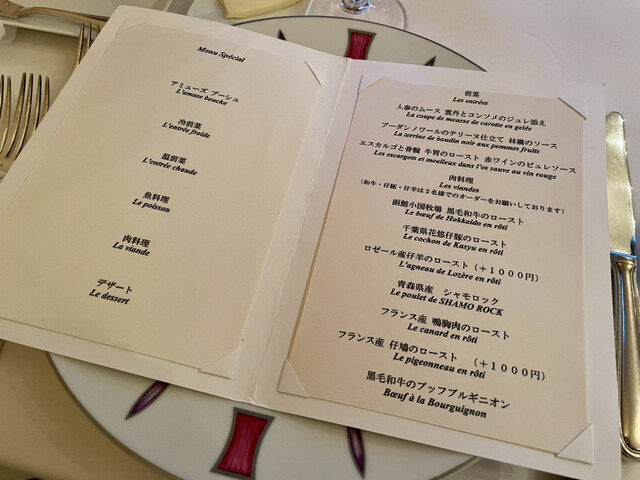 Menu Spécial
アミューズ ブーシュ
L'amuse bouche
冷前菜
L'entrée froide
温前菜
L'entrée chaude
魚料理
Le poisson
肉料理
La viande
デザート
Le dessert
前菜
Les entrées
人参のムース 雲丹とコンソメのジュレ添え
La coupe de mousse de carotte en gelée
ブーダンノワールのテリーヌ仕立て 林檎のソース
La terrine de boudin noir aux pommes fruits
エスカルゴと骨髄 牛胃のロースト 赤ワインのピュレソース
Les escargots et moelleux dans l'os sauve au vin rouge
肉料理
Les viandes
（和牛・仔豚・仔羊は２名様でのオーダーをお願いしております）
函館小国牧場 黒毛和牛のロースト
Le bœuf de Hokkaido en rôti
千葉県花悠仔豚のロースト
Le cochon de Kasyu en rôti
ロゼール産仔羊のロースト（＋１０００円）
L'agneau de Lozère en rôti
青森県産 シャモロック
Le poulet de SHAMO ROCK
フランス産 鴨胸肉のロースト
Le canard en rôti
フランス産 仔鳩のロースト （＋１０００円）
Le pigeonneau en rôti
黒毛和牛のブッフブルギニオン
Bœuf à la Bourguignon